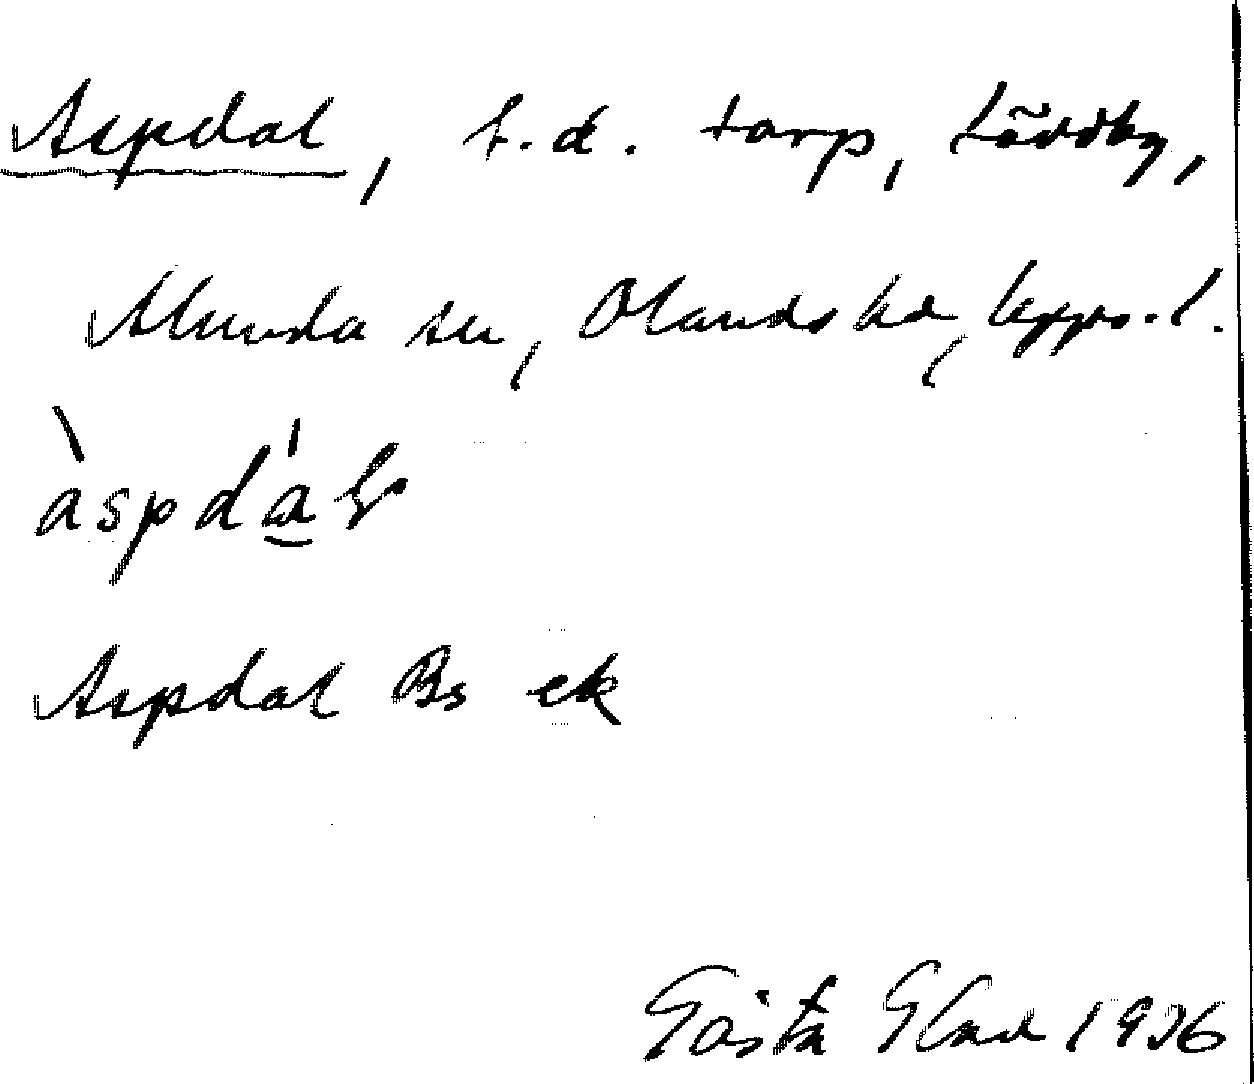 Aspdal, f.d. torp, Lövsby,
Alunda sn, Olands hd, Upps. l.
àspdá̱l
Aspdal Bs ek
Gösta Glad 1936